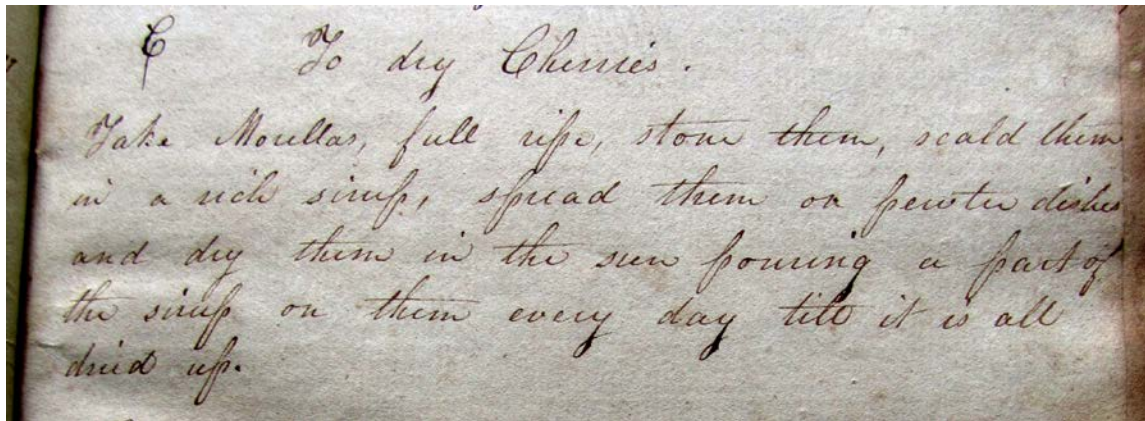 C To dry Cherries.
Take Morellas, full ripe, stone them, scald them
in a rich sirup, spread them on pewter dishes
and dry them in the sun pouring a part of
the sirup on them every day till it is all
dried up.